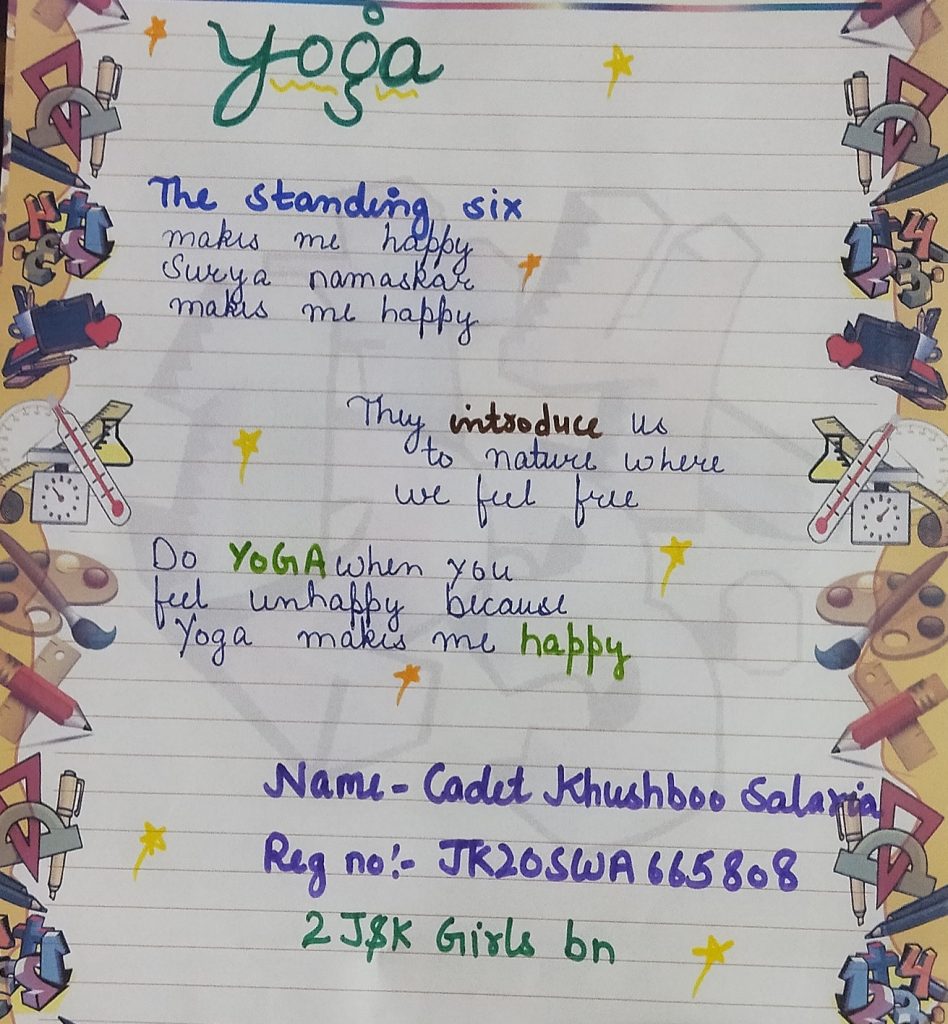 Yoga
The standing six
makes me happy
Surya namaskar
makes me happy
They introduce us
to nature where
we feel free
Do YOGA when you
feel unhappy because
Yoga makes me happy
Name- Cadet Khushboo Salaria
Reg no:- JK20SWA665808
2 J&K Girls bn